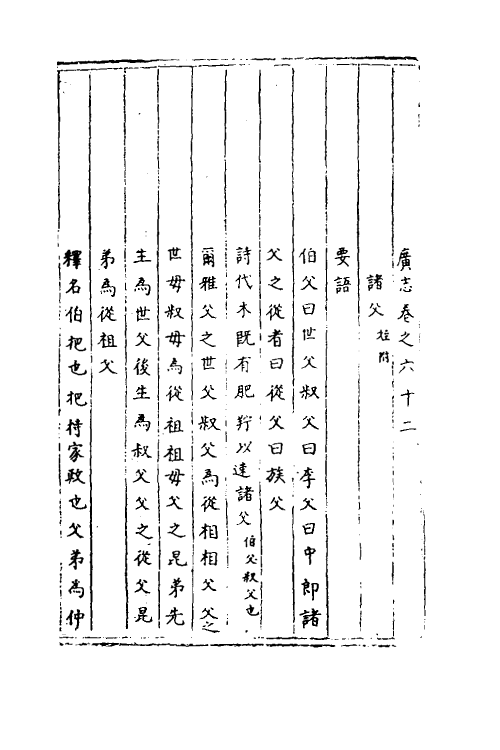 廣志卷之六十二
諸父 姪附
要語
伯父曰世父叔父曰季父曰中郎諸
父之從者曰從父曰族父
詩代木既有肥羜以速諸父伯父叔父也
爾雅父之世父叔父為從相相父父之
世母叔母為從祖祖母父之昆弟先
生為世父後生為叔父父之從父昆
弟為從祖父
釋名伯把也把持家政也父弟為仲